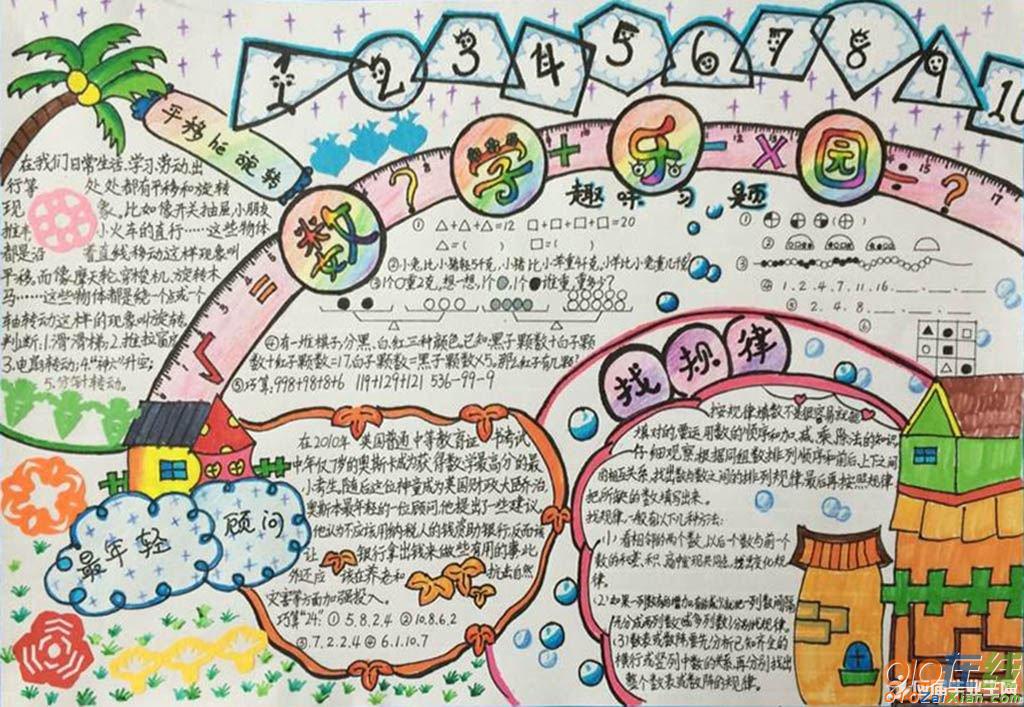 1 2 3 4 5 6 7 8 9 10
数学乐园
? + - × ÷ ?
= √
平移和旋转
在我们日常生活、学习、劳动出
行等 处处都有平移和旋转
现 象。比如像开关抽屉,小朋友
推 小火车的直行……这些物体
都是沿 着直线移动这样现象叫
平移。而像摩天轮,穿梭机,旋转木
马……这些物体都是绕一个点或一个
轴转动这样的现象叫旋转
判断:1.滑滑梯;2.推拉窗
3.电扇转动;4."神六"升空;
5.分针转动。
趣味习题
① △+△+△=12 □+□+□+□=20
△=( ) □=( )
②小兔比小猪轻5千克,小猪比小羊重4千克,小羊比小兔重几千克
③1个○重2克,想一想,1个 ,1个 谁重,重多少?
④有一堆棋子,分黑、白、红三种颜色,已知:黑子颗数+白子颗
数+红子颗数=17,白子颗数=黑子颗数×5,那么红子有几颗?
⑤巧算:998+98+8+6 119+129+121 536-99-9
① ( )
②
③
④ 1.2.4.7.11.16.
⑤ 2.4.8.
⑥
最年轻 顾问
在2010年 英国普通中等教育证 书考试
中年仅7岁的奥斯卡成为获得数学最高分的最
小考生,随后这位神童成为英国财政大臣乔治.
奥斯本最年轻的一位顾问,他提出了一些建议.
他认为不应该用纳税人的钱资助银行反而该
让 银行拿出钱来做些有用的事此
外还应 该在养老和 抗击自然
灾害等方面加强投入。
巧算"24". ① 5.8.2.4 ② 10.8.6.2
③ 7.2.2.4 ④ 6.1.10.7
找规律
按规律填数不是很容易就能
填对的,需运用数的顺序和加、减、乘、除法的知识
仔细观察,根据同组数排列顺序和前后、上下之间
的相互关系,找出数与数之间的排列规律,最后再按照规律
把所缺的数填写出来。
找规律,一般有以下几种方法:
(1)看相邻的两个数,以后个数与前一个
数的和、差、积、商中发现共同点,
律。
(2)如果一列数有的增加
先分成两列数(或多列数)分别找规律。
(3)数表或数阵要先分析已知齐全的
横行或竖列中数的关系,再分别找出
整个数表或数阵的规律。
010在线
010ZaiXian.com